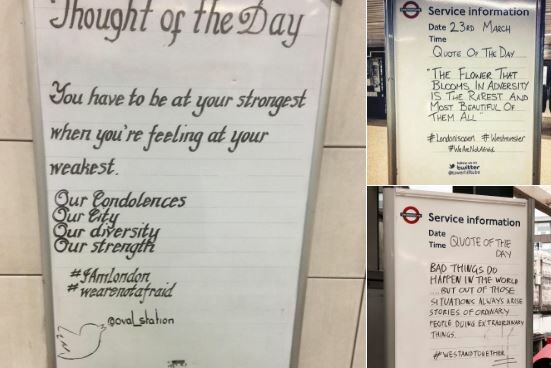 Thought of the Day
You have to be at your strongest
when you're feeling at your
weakest.
Our Condolences
Our City
Our diversity
Our strength
#IAmLondon
#wearenotafraid
@oval_station
Service information
Date 23RD MARCH
Time
QUOTE OF THE DAY
"THE FLOWER THAT
BLOOMS IN ADVERSITY
IS THE RAREST AND
MOST BEAUTIFUL OF
THEM ALL"
#Londoniscoen #Westminster
#WeAreNotAfraid
twitter
Service information
Date
Time QUOTE OF THE
DAY
BAD THINGS DO
HAPPEN IN THE WORLD
....BUT OUT OF THOSE
SITUATIONS ALWAYS ARISE
STORIES OF ORDINARY
PEOPLE DOING EXTRAORDINARY
THINGS.
#WESTANDTOGETHER